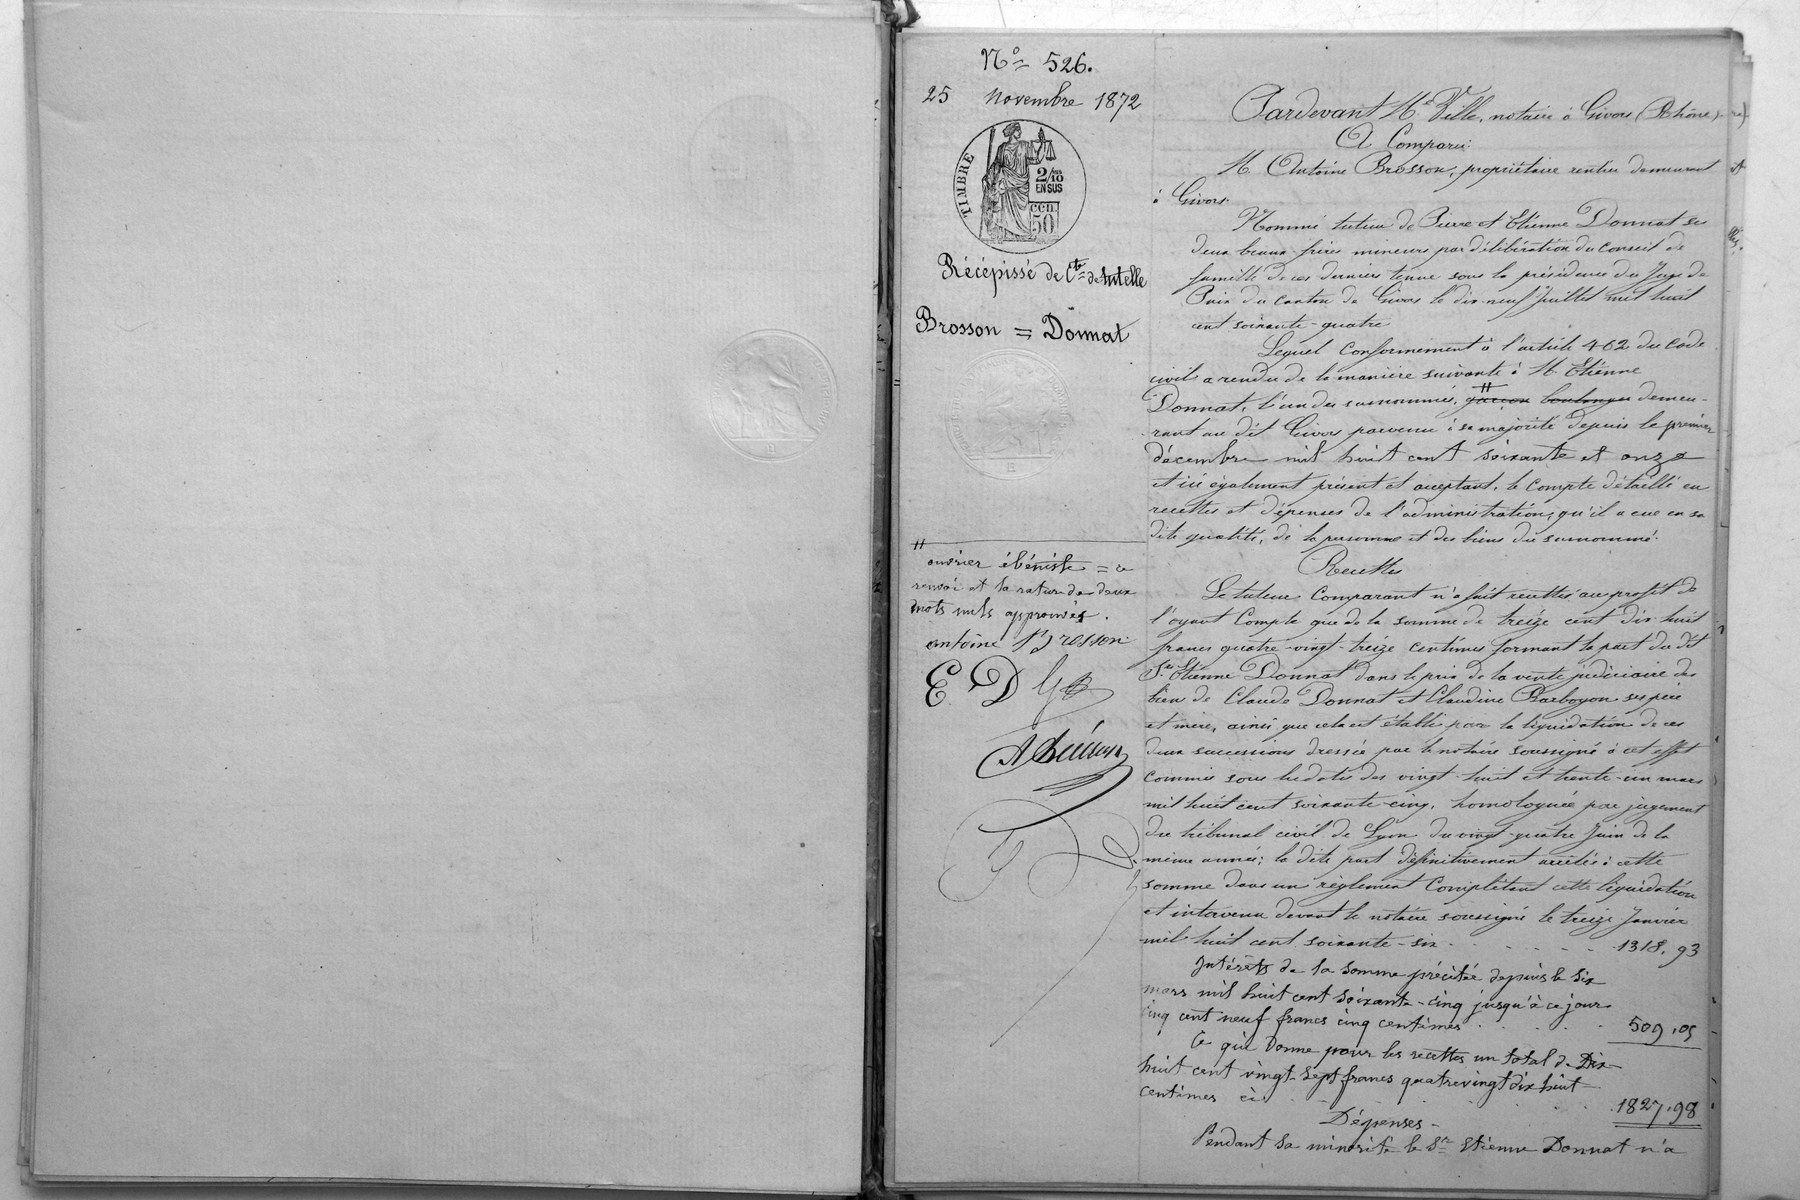 Nº 526.
25 Novembre 1872
TIMBRE
2/10
EN SUS
50 CEN.
Récépissé de Cte de tutelle
Brosson = Donnat
ouvrier ébéniste = ce
renvoi et la rature de deux
mots nuls approuvés.
antoine Brosson
E D
Pardevant Me Ville, notaire à Givors (Rhône)
A Comparu:
M. Antoine Brosson, propriétaire rentier demeurant
à Givors.
Nommé tuteur de Pierre et Etienne Donnat ses
deux beaux frères mineurs par délibération du Conseil de
famille de ces derniers tenue sous la présidence du Juge de
Paix du canton de Givors le dix-neuf Juillet mil huit
cent soixante-quatre
Lequel Conformément à l'article 462 du Code
civil a rendu de la manière suivante à M. Etienne
Donnat, l'un des surnommés, garçon boulanger demeu-
rant au dit Givors parvenu à sa majorité depuis le premier
décembre mil huit cent soixante et onze
et ici également présent et acceptant, le Compte détaillé en
recettes et dépenses de l'administration, qu'il a eue en sa
dite qualité, de la personne et des biens du surnommé.
Recettes
Le tuteur Comparant n'a fait recettes au profit de
l'oyant Compte que de la somme de treize cent dix huit
francs quatre-vingt-treize centimes formant la part du dit
Sr Etienne Donnat dans le prix de la vente judiciaire des
biens de Claude Donnat et Claudine Barboyon ses père
et mère, ainsi que cela est établi par la liquidation de ces
deux successions dressée par le notaire soussigné à cet effet
commis sous les dates des vingt-huit et trente-un mars
mil huit cent soixante-cinq, homologuée par jugement
du tribunal civil de Lyon du vingt-quatre Juin de la
même année; la dite part définitivement arrêtée à cette
somme dans un règlement Complétant cette liquidation
et intervenu devant le notaire soussigné le treize Janvier
mil huit cent soixante-six . . . . . . 1318,93
Intérêts de la somme précitée depuis le six
mars mil huit cent soixante-cinq jusqu'à ce jour
cinq cent neuf francs cinq centimes . . . . . 509,05
Ce qui Donne pour les recettes un total de Dix
huit cent vingt-sept francs quatrevingt dix huit
centimes ci . . . . . . 1827,98
Dépenses -
Pendant sa minorité le Sr Etienne Donnat n'a